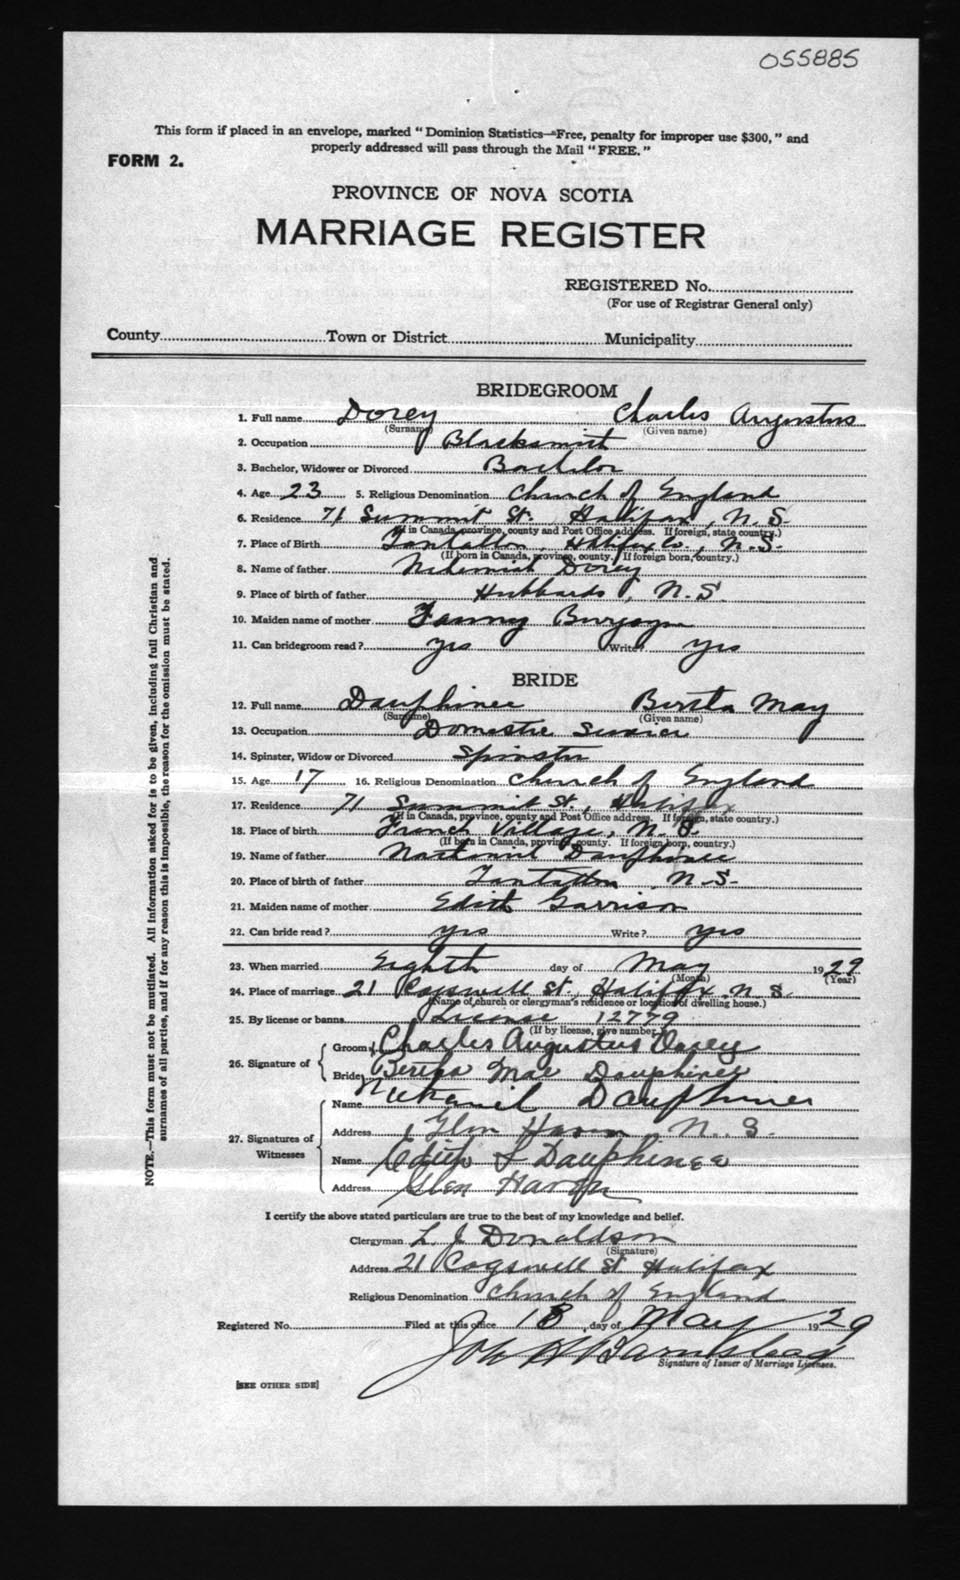 055885
This form if placed in an envelope, marked "Dominion Statistics—Free, penalty for improper use $300," and
properly addressed will pass through the Mail "FREE."
FORM 2.
PROVINCE OF NOVA SCOTIA
MARRIAGE REGISTER
REGISTERED No.
(For use of Registrar General only)
County Town or District Municipality
BRIDEGROOM
1. Full name Dorey Charles Augustus
(Surname) (Given name)
2. Occupation Blacksmith
3. Bachelor, Widower or Divorced Bachelor
4. Age 23 5. Religious Denomination Church of England
6. Residence 71 Summit St., Halifax, N.S.
(If in Canada, province, county and Post Office address. If foreign, state country.)
7. Place of Birth Tantallon, Halifax Co., N.S.
(If born in Canada, province, county. If foreign born, country.)
8. Name of father Nehemiah Dorey
9. Place of birth of father Hubbards, N.S.
10. Maiden name of mother Fanny Burgoyne
11. Can bridegroom read? yes Write? yes
BRIDE
12. Full name Dauphinee Bertha May
(Surname) (Given name)
13. Occupation Domestic Service
14. Spinster, Widow or Divorced Spinster
15. Age 17 16. Religious Denomination Church of England
17. Residence 71 Summit St., Halifax
(If in Canada, province, county and Post Office address. If foreign, state country.)
18. Place of birth French Village, N.S.
(If born in Canada, province, county. If foreign born, country.)
19. Name of father Nathaniel Dauphinee
20. Place of birth of father Tantallon N.S.
21. Maiden name of mother Edith Garrison
22. Can bride read? yes Write? yes
23. When married Eighth day of May 1929
(Month) (Year)
24. Place of marriage 21 Cogswell St., Halifax, N.S.
(Name of church or clergyman's residence or location of dwelling house.)
25. By license or banns License 12779
(If by license, give number.)
26. Signature of Groom Charles Augustus Dorey
Bride Bertha Mae Dauphinee
27. Signatures of Witnesses
Name Nathaniel Dauphinee
Address Glen Haven N.S.
Name Edith S Dauphinee
Address Glen Haven
I certify the above stated particulars are true to the best of my knowledge and belief.
Clergyman L. J. Donaldson
(Signature)
Address 21 Cogswell St Halifax
Religious Denomination Church of England
Registered No. Filed at this office 13 day of May 1929
Signature of Issuer of Marriage Licenses.
[SEE OTHER SIDE]
NOTE.—This form must not be mutilated. All information asked for is to be given, including full Christian and
surnames of all parties, and if for any reason this is impossible, the reason for the omission must be stated.